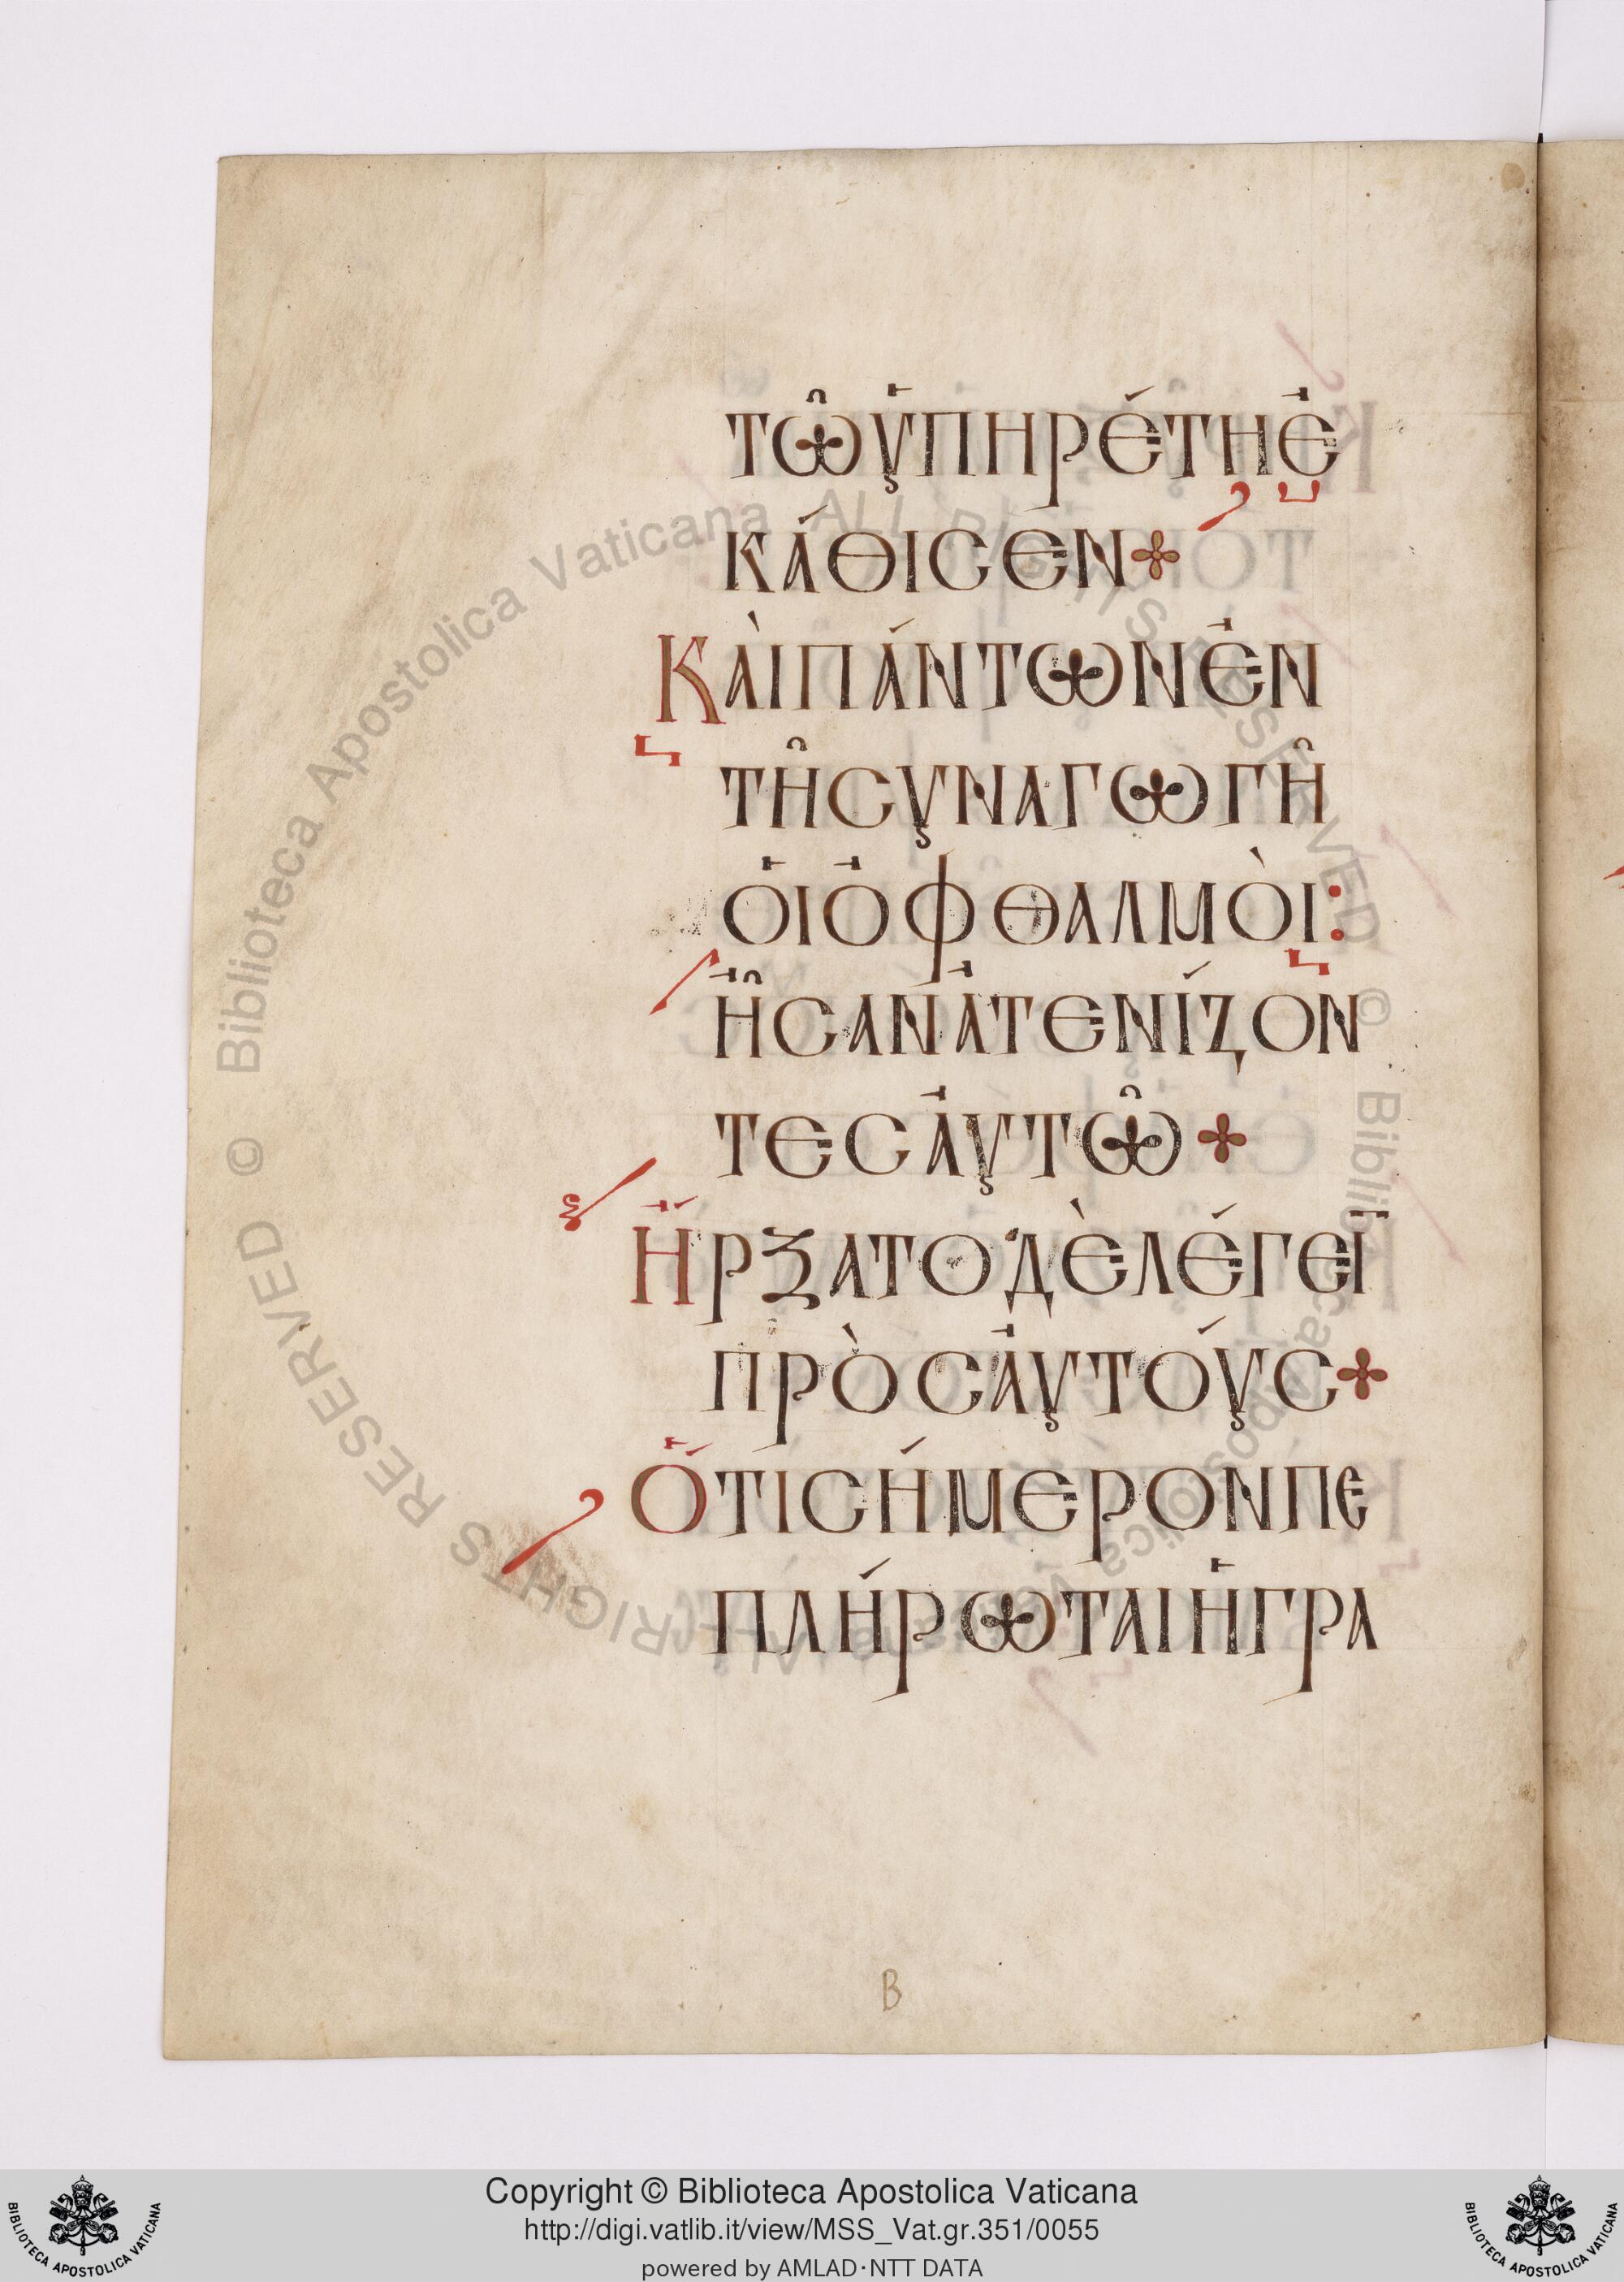 ΤῶὙΠΗΡΈΤΗἘ
ΚΆΘΙCΕΝ
ΚΑῚΠΆΝΤΩΝἘΝ
ΤῆCΥΝΑΓΩΓῆ
ὉΙὈΦΘΑΛΜΟῚ:
ἮCΑΝἈΤΕΝΊΖΟΝ
ΤΕCἈΥΤῶ
ἬΡΞΑΤΟΔῈΛΈΓΕΪ
ΠΡῸCἈΥΤΟΎC
ὍΤΙCΉΜΕΡΟΝΠΕ
ΠΛΉΡΩΤΑΙἩΓΡΑ
B
© Biblioteca Apostolica Vaticana ALL RIGHTS RESERVED © Biblioteca Apostolica Vaticana ALL RIGHTS RESERVED
Copyright © Biblioteca Apostolica Vaticana
http://digi.vatlib.it/view/MSS_Vat.gr.351/0055
powered by AMLAD·NTT DATA
BIBLIOTECA APOSTOLICA VATICANA
BIBLIOTECA APOSTOLICA VATICANA